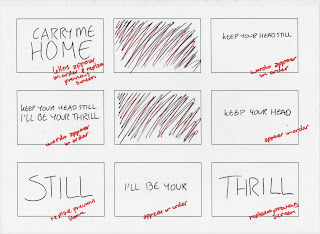 CARRY ME
HOME
letters appear
in order & replace
previous
screen
KEEP YOUR HEAD STILL
words appear
in order
KEEP YOUR HEAD STILL
I'LL BE YOUR THRILL
words appear
in order
KEEP YOUR HEAD
appear in order
STILL
replace previous
I'LL BE YOUR
appear in order
THRILL
replace previous
screen